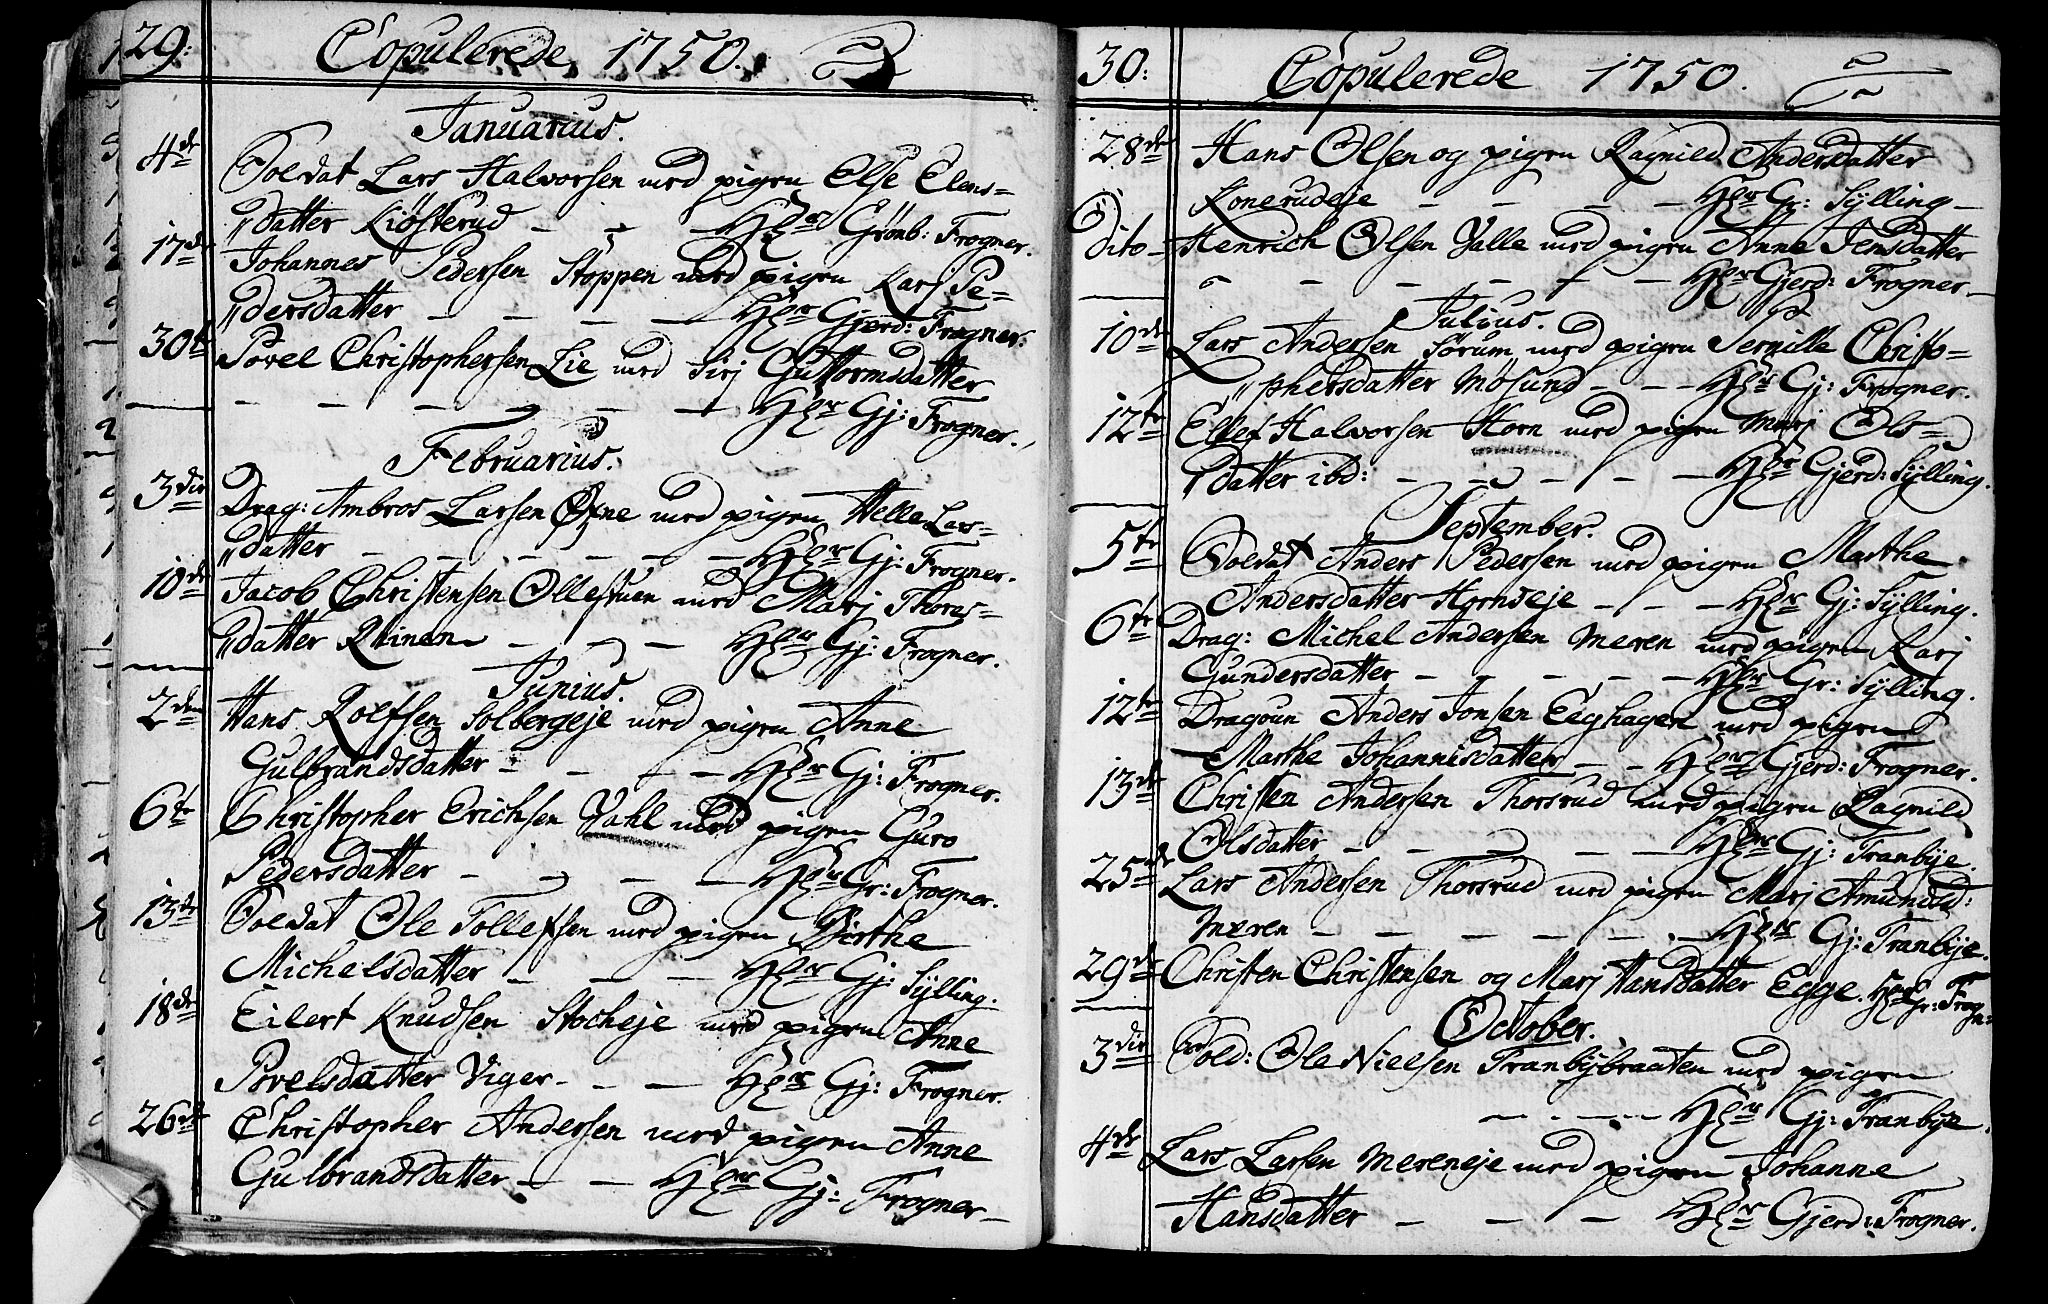 29:
Copulerede 1750.
Januarius.
4de Soldat Lars Halvorsen med pigen Else Elens=
datter Kiösterud — — — Hr Grönb: Frogner.
17de Johannes Pedersen Stoppen med pigen Karj Pe=
dersdatter — — — — Hr Gjerd: Frogner.
30te Povel Christophersen Lie med Sirj Guttormsdatter
— — — — — — Hr Gj: Frogner.
Februarius.
3die Drag: Ambros Larsen Øfne med pigen Helle Lars=
datter — — — — — — Hr Gj: Frogner.
10de Jacob Christensen Ollestuen med Marj Thores=
datter Rhinen — — — Hr Gj: Frogner.
Junius.
2den Hans Rolfsen Solbergeje med pigen Anne
Gulbrandsdatter — — — — Hr Gj: Frogner.
6te Christopher Erichsen Dahl med pigen Guro
Pedersdatter — — — — Hr Gr: Frogner.
13de Soldat Ole Tollefsen med pigen Birthe
Michelsdatter — — — — Hr Gj: Sylling.
18de Eilert Knudsen Stocheje med pigen Anne
Povelsdatter Viger — — — Hr Gj: Frogner.
26de Christopher Andersen med pigen Anne
Gulbrandsdatter — — Hr Gj: Frogner —
30:
Copulerede 1750.
28de Hans Olsen og pigen Ragnild Andersdatter
Konerudeje — — — — Hr Gr: Sylling —
Dito — Henrich Olsen Valle med pigen Anne Jensdatter
— — — — — — Hr Gjerd: Frogner —
Julius.
10de Lars Andersen Sørum med pigen Pernille Christo=
phersdatter Møsund — — — Hr Gj: Frogner.
12te Ellef Halvorsen Horn med pigen Marj Ols=
datter ibd: — — — — — Hr Gjerd: Sylling.
September.
5te Soldat Anders Pedersen med pigen Marthe
Andersdatter Horneeje — — — Hr Gj: Sylling.
6te Drag: Michel Andersen Meren med pigen Karj
Gundersdatter — — — — — Hr Gr: Sylling.
12te Dragoun Anders Jonsen Eeghagen med pigen
Marthe Johannisdatter — — Hr Gjerd: Frogner.
13de Christen Andersen Thorsrud med pigen Ragnild
Olsdatter — — — — — Hr Gj: Tranbye.
25de Lars Andersen Thorsrud med pigen Marj Amundsd:
Meren — — — — — — Hr Gj: Tranbye.
29de Christen Christensen og Marj Hansdatter Egge. Hr Gr: Frogn:
October.
3die Sold: Ole Nielsen Tranbybraaten med pigen
— — — — Hr Gj: Tranbye.
4de Lars Larsen Mereneje med pigen Johanne
Hansdatter — — — — Hr Gjerd: Frogner.